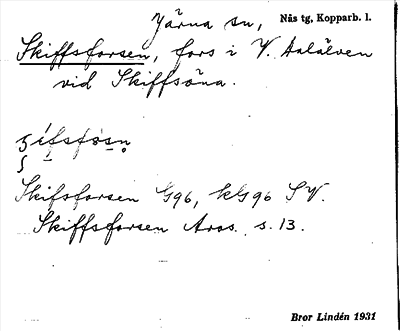 Järna sn, Nås tg, Kopparb. l.
Skiffsforsen, fors i V. Dalälven
vid Skiffsöna.
Skifsforsen G96, kG96 SV.
Skiffsforsen Aros. s. 13.
Bror Lindén 1931